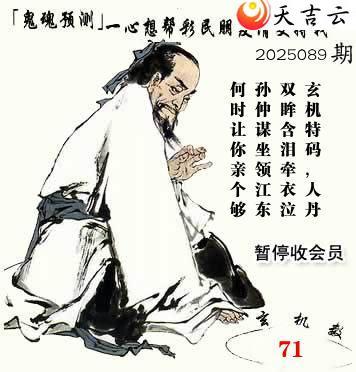 天吉云
「鬼魂预测」一心想帮彩民朋
2025089期
玄机特码，人丹
双眸含泪牵衣泣
孙仲谋坐领江东
何时让你亲个够
暂停收会员
玄机
71